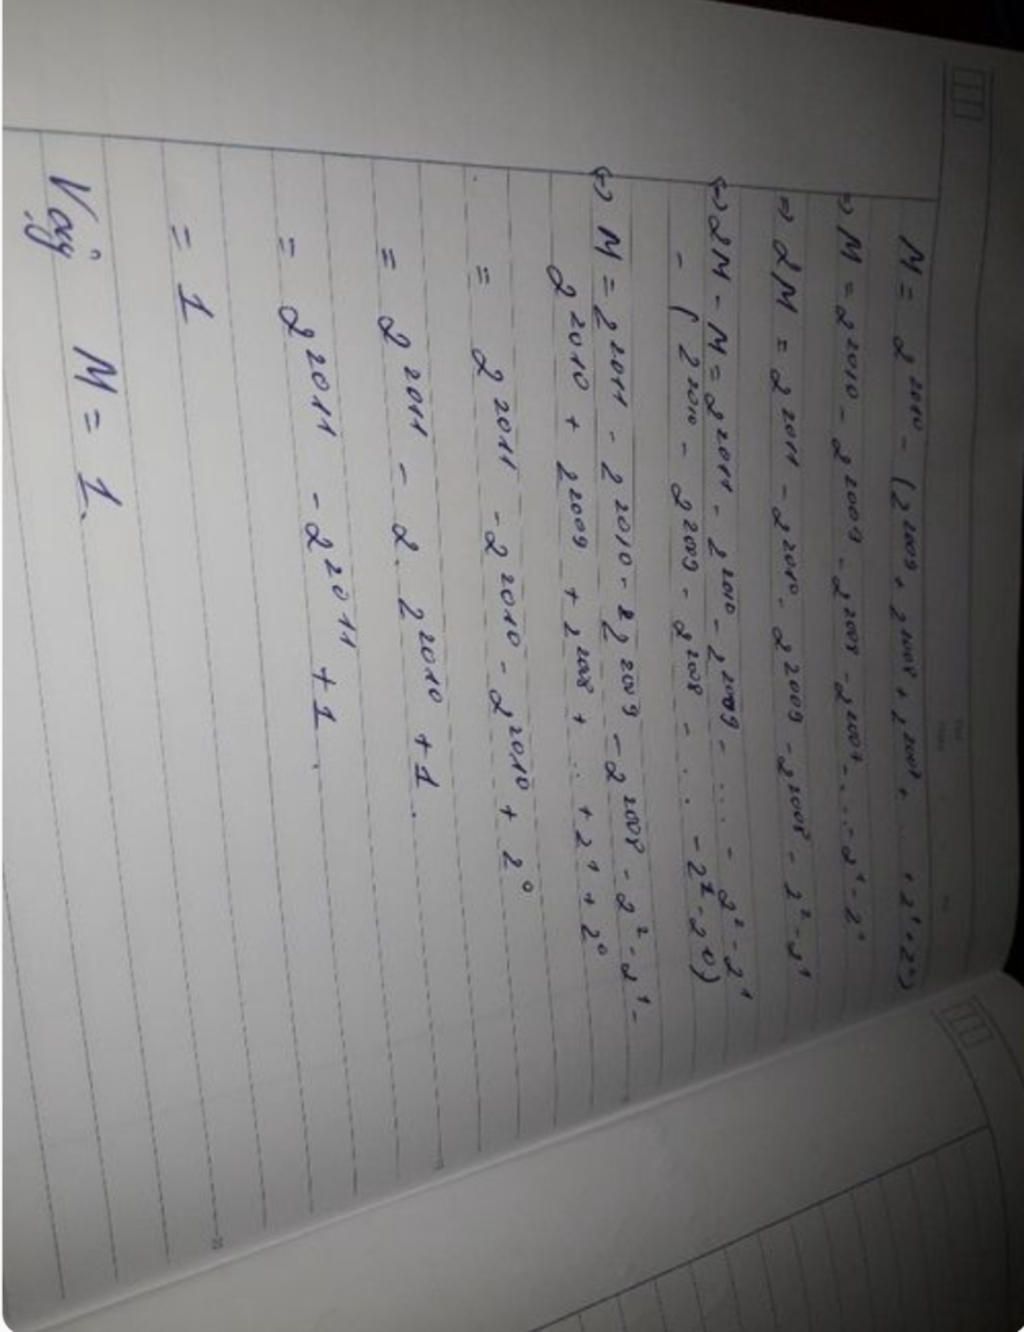 M = 2^2010 - (2^2009 + 2^2008 + 2^2007 + ... + 2^1 + 2^0)
=> M = 2^2010 - 2^2009 - 2^2008 - 2^2007 - ... - 2^1 - 2^0
=> 2M = 2^2011 - 2^2010 - 2^2009 - 2^2008 - 2^2 - 2^1
(=) 2M - M = 2^2011 - 2^2010 - 2^2009 - ... - 2^2 - 2^1
- (2^2010 - 2^2009 - 2^2008 - ... - 2^1 - 2^0)
(=) M = 2^2011 - 2^2010 - 2^2009 - 2^2008 - 2^2 - 2^1 -
2^2010 + 2^2009 + 2^2008 + ... + 2^1 + 2^0
= 2^2011 - 2^2010 - 2^2010 + 2^0
= 2^2011 - 2. 2^2010 + 1.
= 2^2011 - 2^2011 + 1.
= 1
Vậy M = 1.